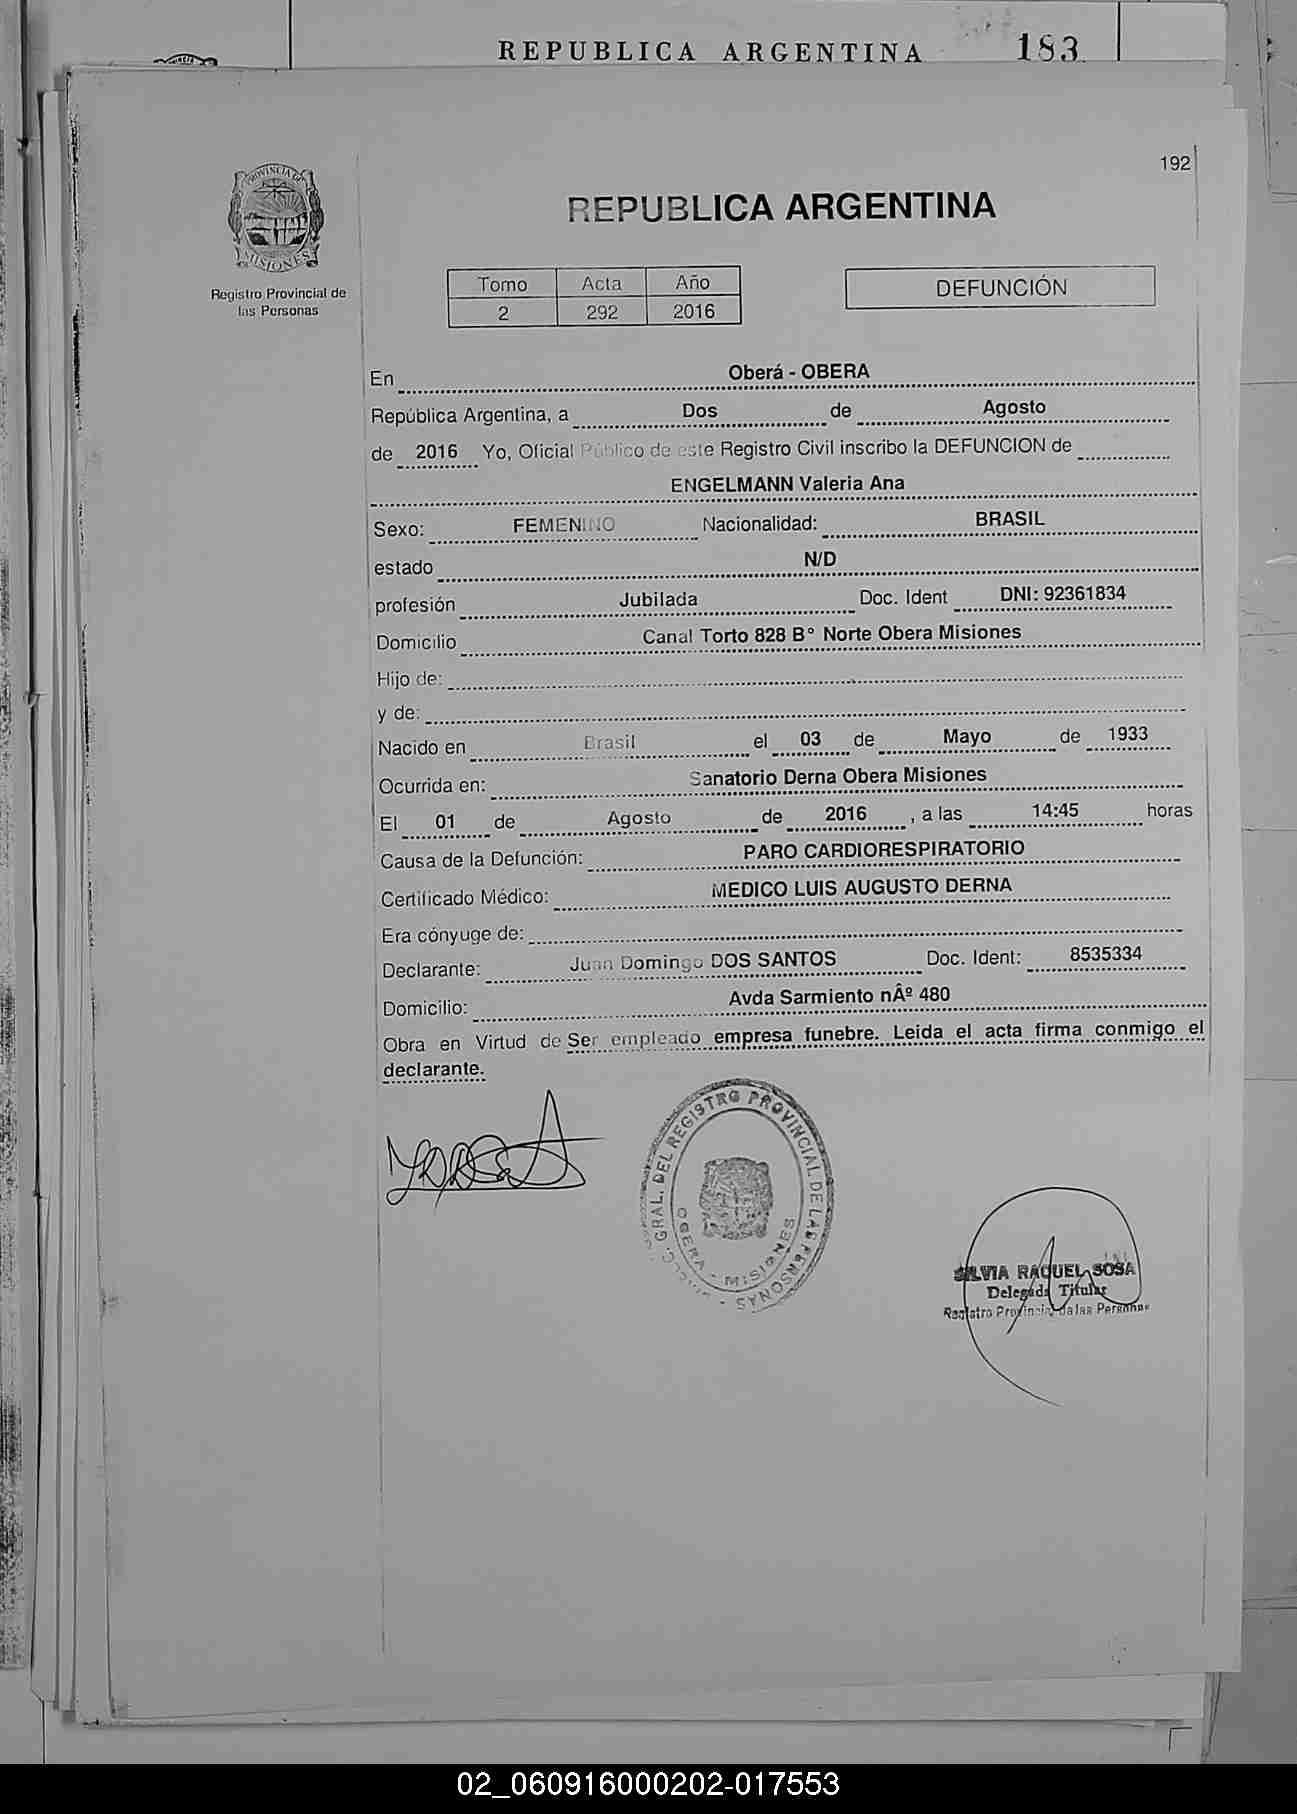 REPUBLICA ARGENTINA 183
192
PROVINCIA DE
MISIONES
Registro Provincial de
las Personas
REPUBLICA ARGENTINA
Tomo Acta Año
2 292 2016
DEFUNCIÓN
En Oberá - OBERA
República Argentina, a Dos de Agosto
de 2016 Yo, Oficial Público de este Registro Civil inscribo la DEFUNCION de
ENGELMANN Valeria Ana
Sexo: FEMENINO Nacionalidad: BRASIL
estado N/D
profesión Jubilada Doc. Ident DNI: 92361834
Domicilio Canal Torto 828 B° Norte Obera Misiones
Hijo de:
y de:
Nacido en Brasil el 03 de Mayo de 1933
Ocurrida en: Sanatorio Derna Obera Misiones
El 01 de Agosto de 2016 , a las 14:45 horas
Causa de la Defunción: PARO CARDIORESPIRATORIO
Certificado Médico: MEDICO LUIS AUGUSTO DERNA
Era cónyuge de:
Declarante: Juan Domingo DOS SANTOS Doc. Ident: 8535334
Domicilio: Avda Sarmiento nÂº 480
Obra en Virtud de Ser empleado empresa funebre. Leida el acta firma conmigo el
declarante.
GRAL. DEL REGISTRO PROVINCIAL DE LAS PERSONAS
OBERA - MISIONES
SILVIA RAQUEL SOSA
Delegada Titular
Registro Provincial de las Personas
02_060916000202-017553